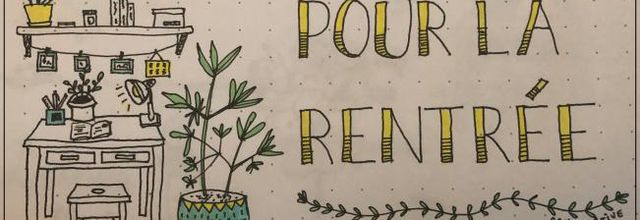 POUR LA
RENTRÉE